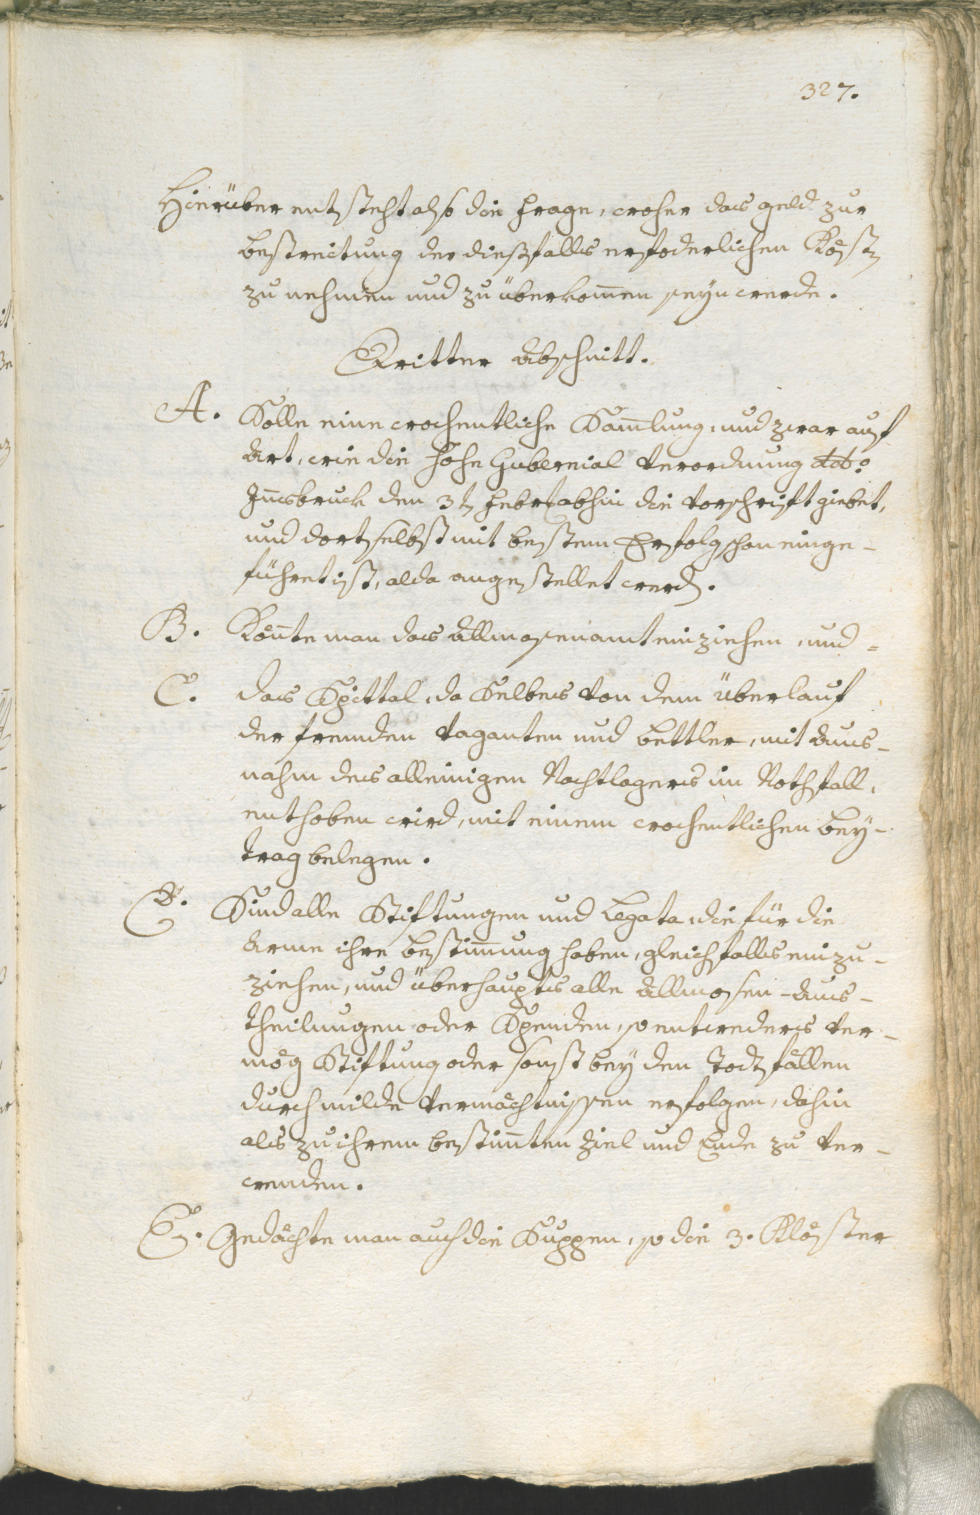 327.
Hierüber entstehet also die Frage, woher das geld zur
bestreitung der dießfalls erfoderlichen Köst
zu nehmen und zu überkom̅en seyn werde.
Dritter Abschnitt.
A. Solle eine wochentliche Sam̅lung, und zwar auf
Art, wie die hohe Gubernial Verordnung ddo
Jnnsbruck den 3t Febr abhin die Vorschrift giebet,
und dortselbst mit bestem Erfolg schon einge-
führet ist, alda angestellet werd.
B. Kön̅te man das Allmosenamt einziehen, und =
C. das Spittal, da Selbes von dem überlauf
der fremden Vaganten und bettler, mit Aus-
nahm des alleinigen Nachtlagers im Nothfall,
enthoben wird, mit einem wochentlichen bey-
trag belegen.
D. Sind alle Stiftungen und Legata, die für die
Arme ihre bestim̅ung haben, gleichfalls einzu-
ziehen, und überhaupts alle Allmosen-Aus-
theilungen oder Spenden, so entweders ver-
mög Stiftung oder sonst bey den Todtfällen
durch milde Vermächtnissen erfolgen, dahin
als zu ihrem bestim̅ten Ziel und Ende zu ver-
wenden.
E. Gedächte man auch die Suppen, so die 3. Klöster